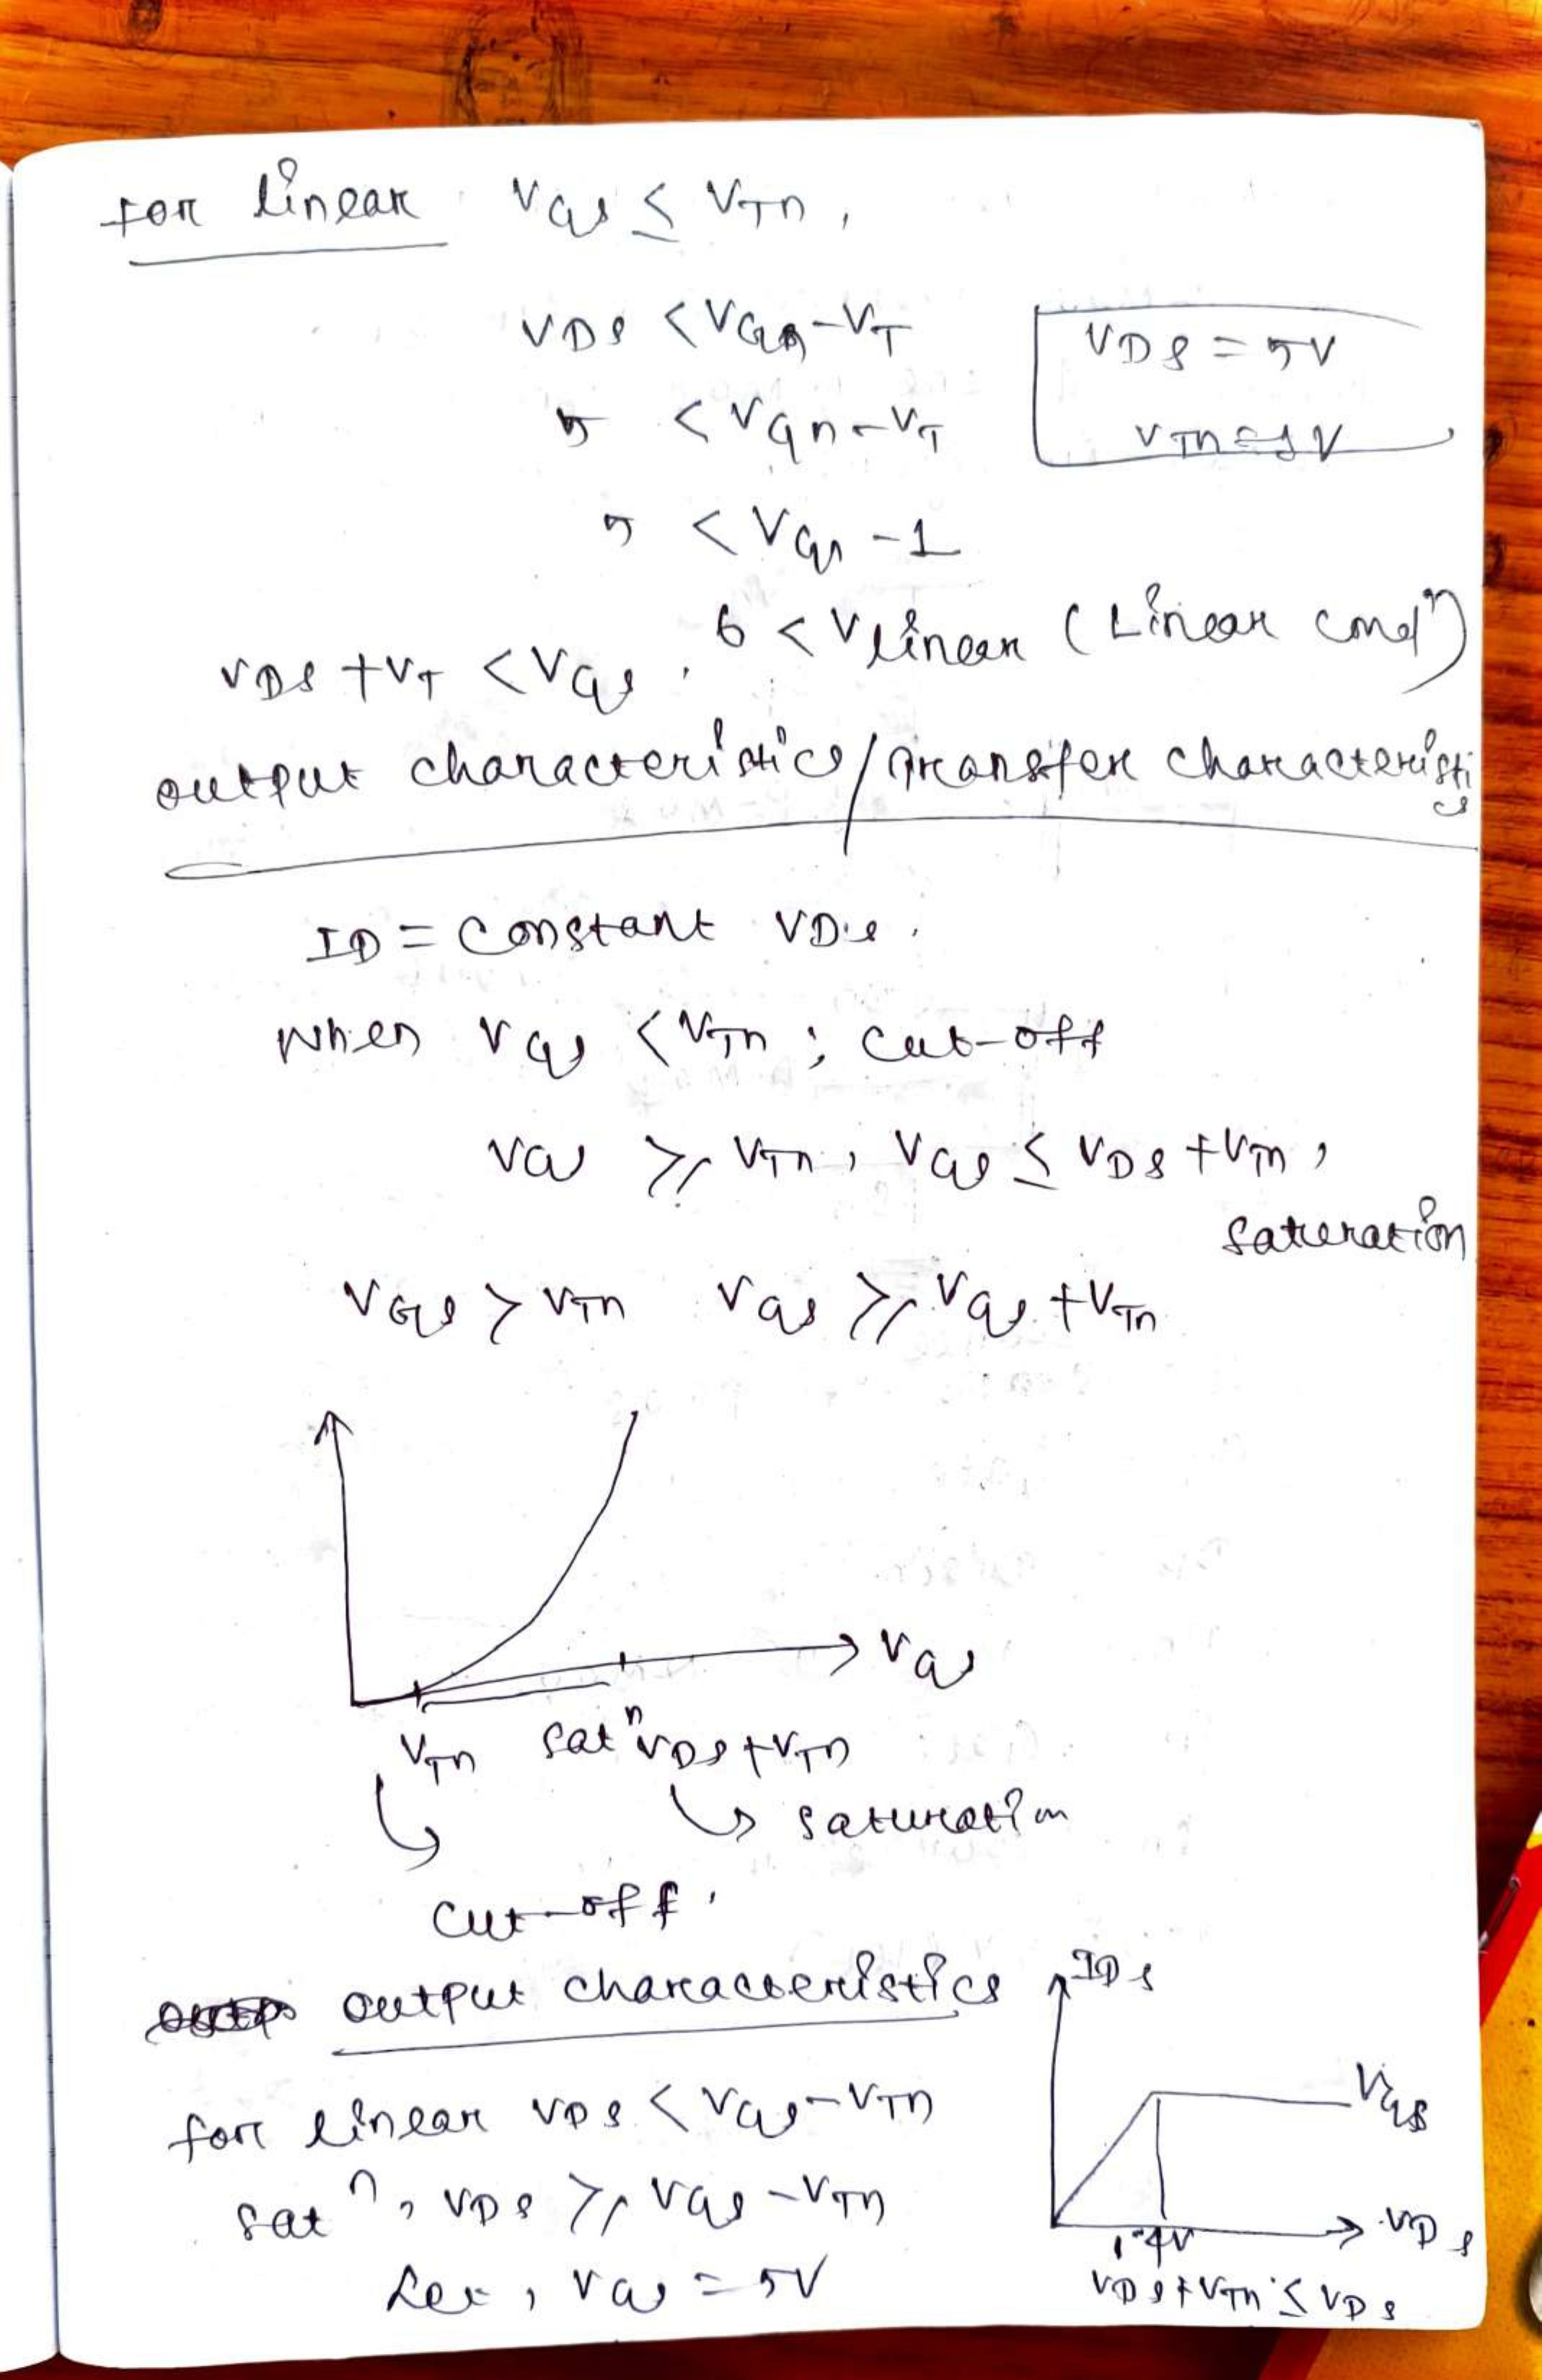 for linear VGS ≤ VTn,
VDS < VGS - VT
5 < VGS - VT
5 < VGS - 1
VDS = 5V
VTn = 1V
VDS + VT < VGS , 6 < Vlinear (Linear condⁿ)
output characteristics / Transfer characteristics
ID = constant VDS.
When VGS < VTn ; cut-off
VGS ≥ VTn , VGS ≤ VDS + VTn ,
saturation
VGS > VTn VGS ≥ VGS + VTn
VGS
VTn satⁿ VDS + VTn
saturation
cut-off .
output characteristics
IDS
for linear VDS < VGS - VTn
VGS
satⁿ, VDS ≥ VGS - VTn
VDS
Let, VGS = 5V
VDS + VTn ≤ VDS